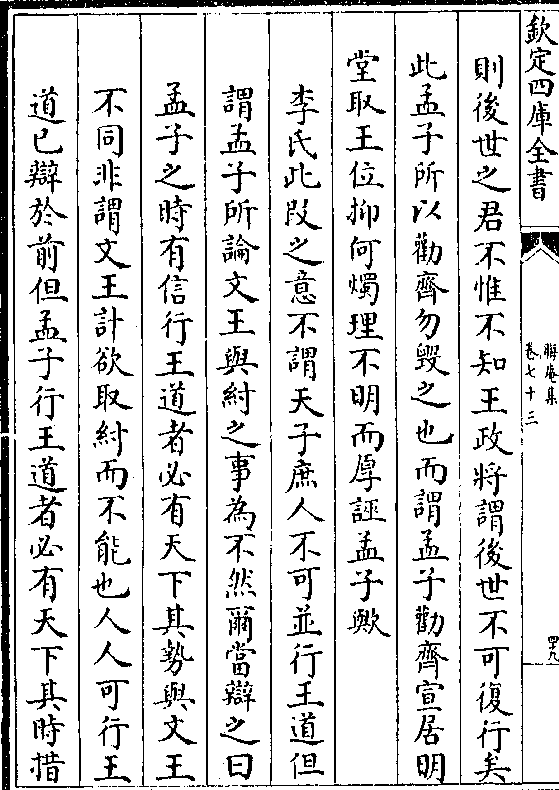 欽定四庫全書
晦庵集
卷七十三
四九
則後世之君不惟不知王政將謂後世不可復行矣
此孟子所以勸齊勿毀之也而謂孟子勸齊宣居明
堂取王位抑何燭理不明而厚誣孟子歟
李氏此段之意不謂天子庶人不可並行王道但
謂孟子所論文王與紂之事為不然爾當辯之曰
孟子之時有信行王道者必有天下其勢與文王
不同非謂文王計欲取紂而不能也人人可行王
道已辯於前但孟子行王道者必有天下其時措